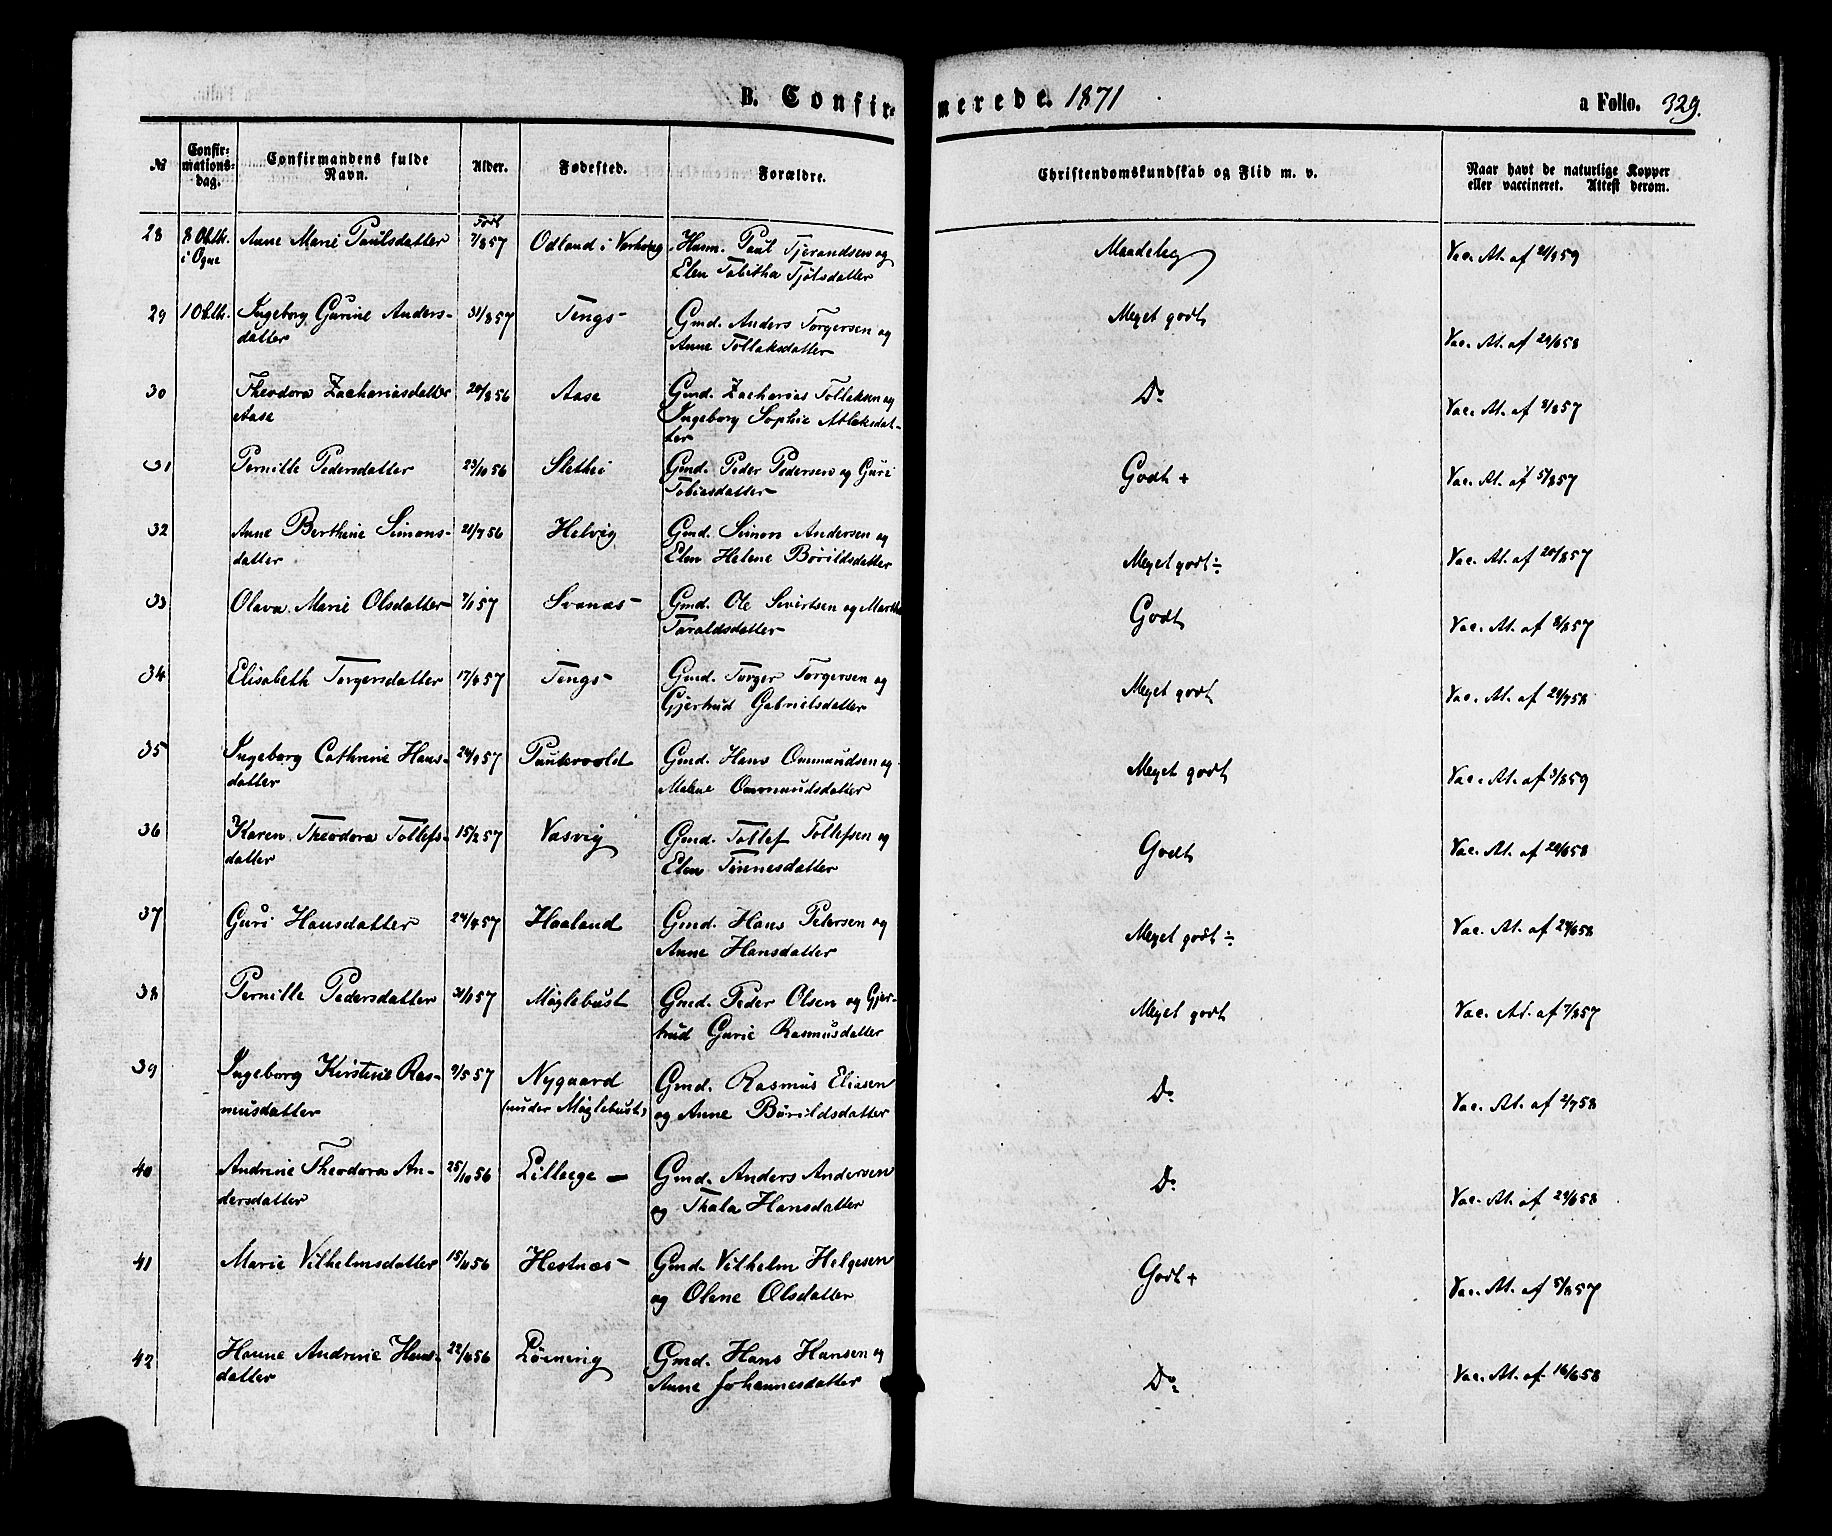 B. Confirmerede. 1871 a Folio. 329.
No Confirmationsdag. Confirmandens fulde Navn. Alder. Fødested. Forældre. Christendomskundskab og Flid m. v. Naar havt de naturlige Kopper eller vaccineret. Attest derom.
28 8 Oktb. Anne Marie Paulsdatter Født 7/8 57 Odland i Varhoug Husm. Paul Tjerandsen og Maadelig Vac. At. af 21/9 59
i Ogne Elen Tabitha Tjølsdatter
29 1 Oktb. Ingeborg Gurine Anders- 31/8 57 Tengs Gmd. Anders Torgersen og Meget godt
datter Anne Tollaksdatter Vac. At. af 29/6 58
30 Theodora Zachariasdatter 20/8 56 Aase Gmd. Zacharias Tollaksen og D⁰
Aase Ingeborg Sophie Atlaksdat- Vac. At. af 8/8 57
ter
31 Pernille Pedersdatter 23/10 56 Slettei Gmd. Peder Pedersen og Guri Godt + Vac. At. af 5/8 57
Tobiasdatter
32 Anne Berthine Simons- 21/7 56 Helvig Gmd. Simon Andersen og
datter Elen Helene Børildsdatter Meget godt ÷ Vac. At. af 20/8 57
33 Olava Marie Olsdatter 7/1 57 Svanæs Gmd. Ole Sivertsen og Martha Godt
Taraldsdatter Vac. At. af 8/8 57
34 Elisabeth Torgersdatter 17/8 57 Tengs Gmd. Torger Torgersen og Meget godt Vac. At. af 29/7 58
Gjertrud Gabrielsdatter
35 Ingeborg Cathrine Hans- 24/9 57 Puntervold Gmd. Hans Ommundsen og Meget godt Vac. At. af 3/8 59
datter Malene Ommundsdatter
36 Karen Theodora Tollefs- 15/2 57 Vasvig Gmd. Tollef Tollefsen og Godt Vac. At. af 29/6 58
datter Elen Tønnesdatter
37 Guri Hansdatter 24/4 57 Haaland Gmd. Hans Petersen og Meget godt ÷ Vac. At. af 29/6 58
Anne Hansdatter
38 Pernille Pedersdatter 31/1 57 Møglebust Gmd. Peder Olsen og Gjer- Meget godt Vac. At. af 7/8 57
trud Gurie Rasmusdatter
39 Ingeborg Kirstine Ras- 9/5 57 Nygaard Gmd. Rasmus Eliasen D⁰
musdatter (under Møglebust) og Anne Børildsdatter Vac. At. af 2/7 58
40 Andrine Theodora An- 25/10 56 Lilleege Gmd. Anders Andersen D⁰
dersdatter og Thala Hansdatter Vac. At. af 29/6 58
41 Marie Vilhelmsdatter 15/11 56 Hestnæs Gmd. Vilhelm Helgesen Godt +
og Olene Olsdatter Vac. At. af 5/8 57
42 Hanne Andrine Hans- 22/11 56 Gmd. Hans Hansen og
datter Anne Johannesdatter D⁰ Vac. At. af 16/6 58